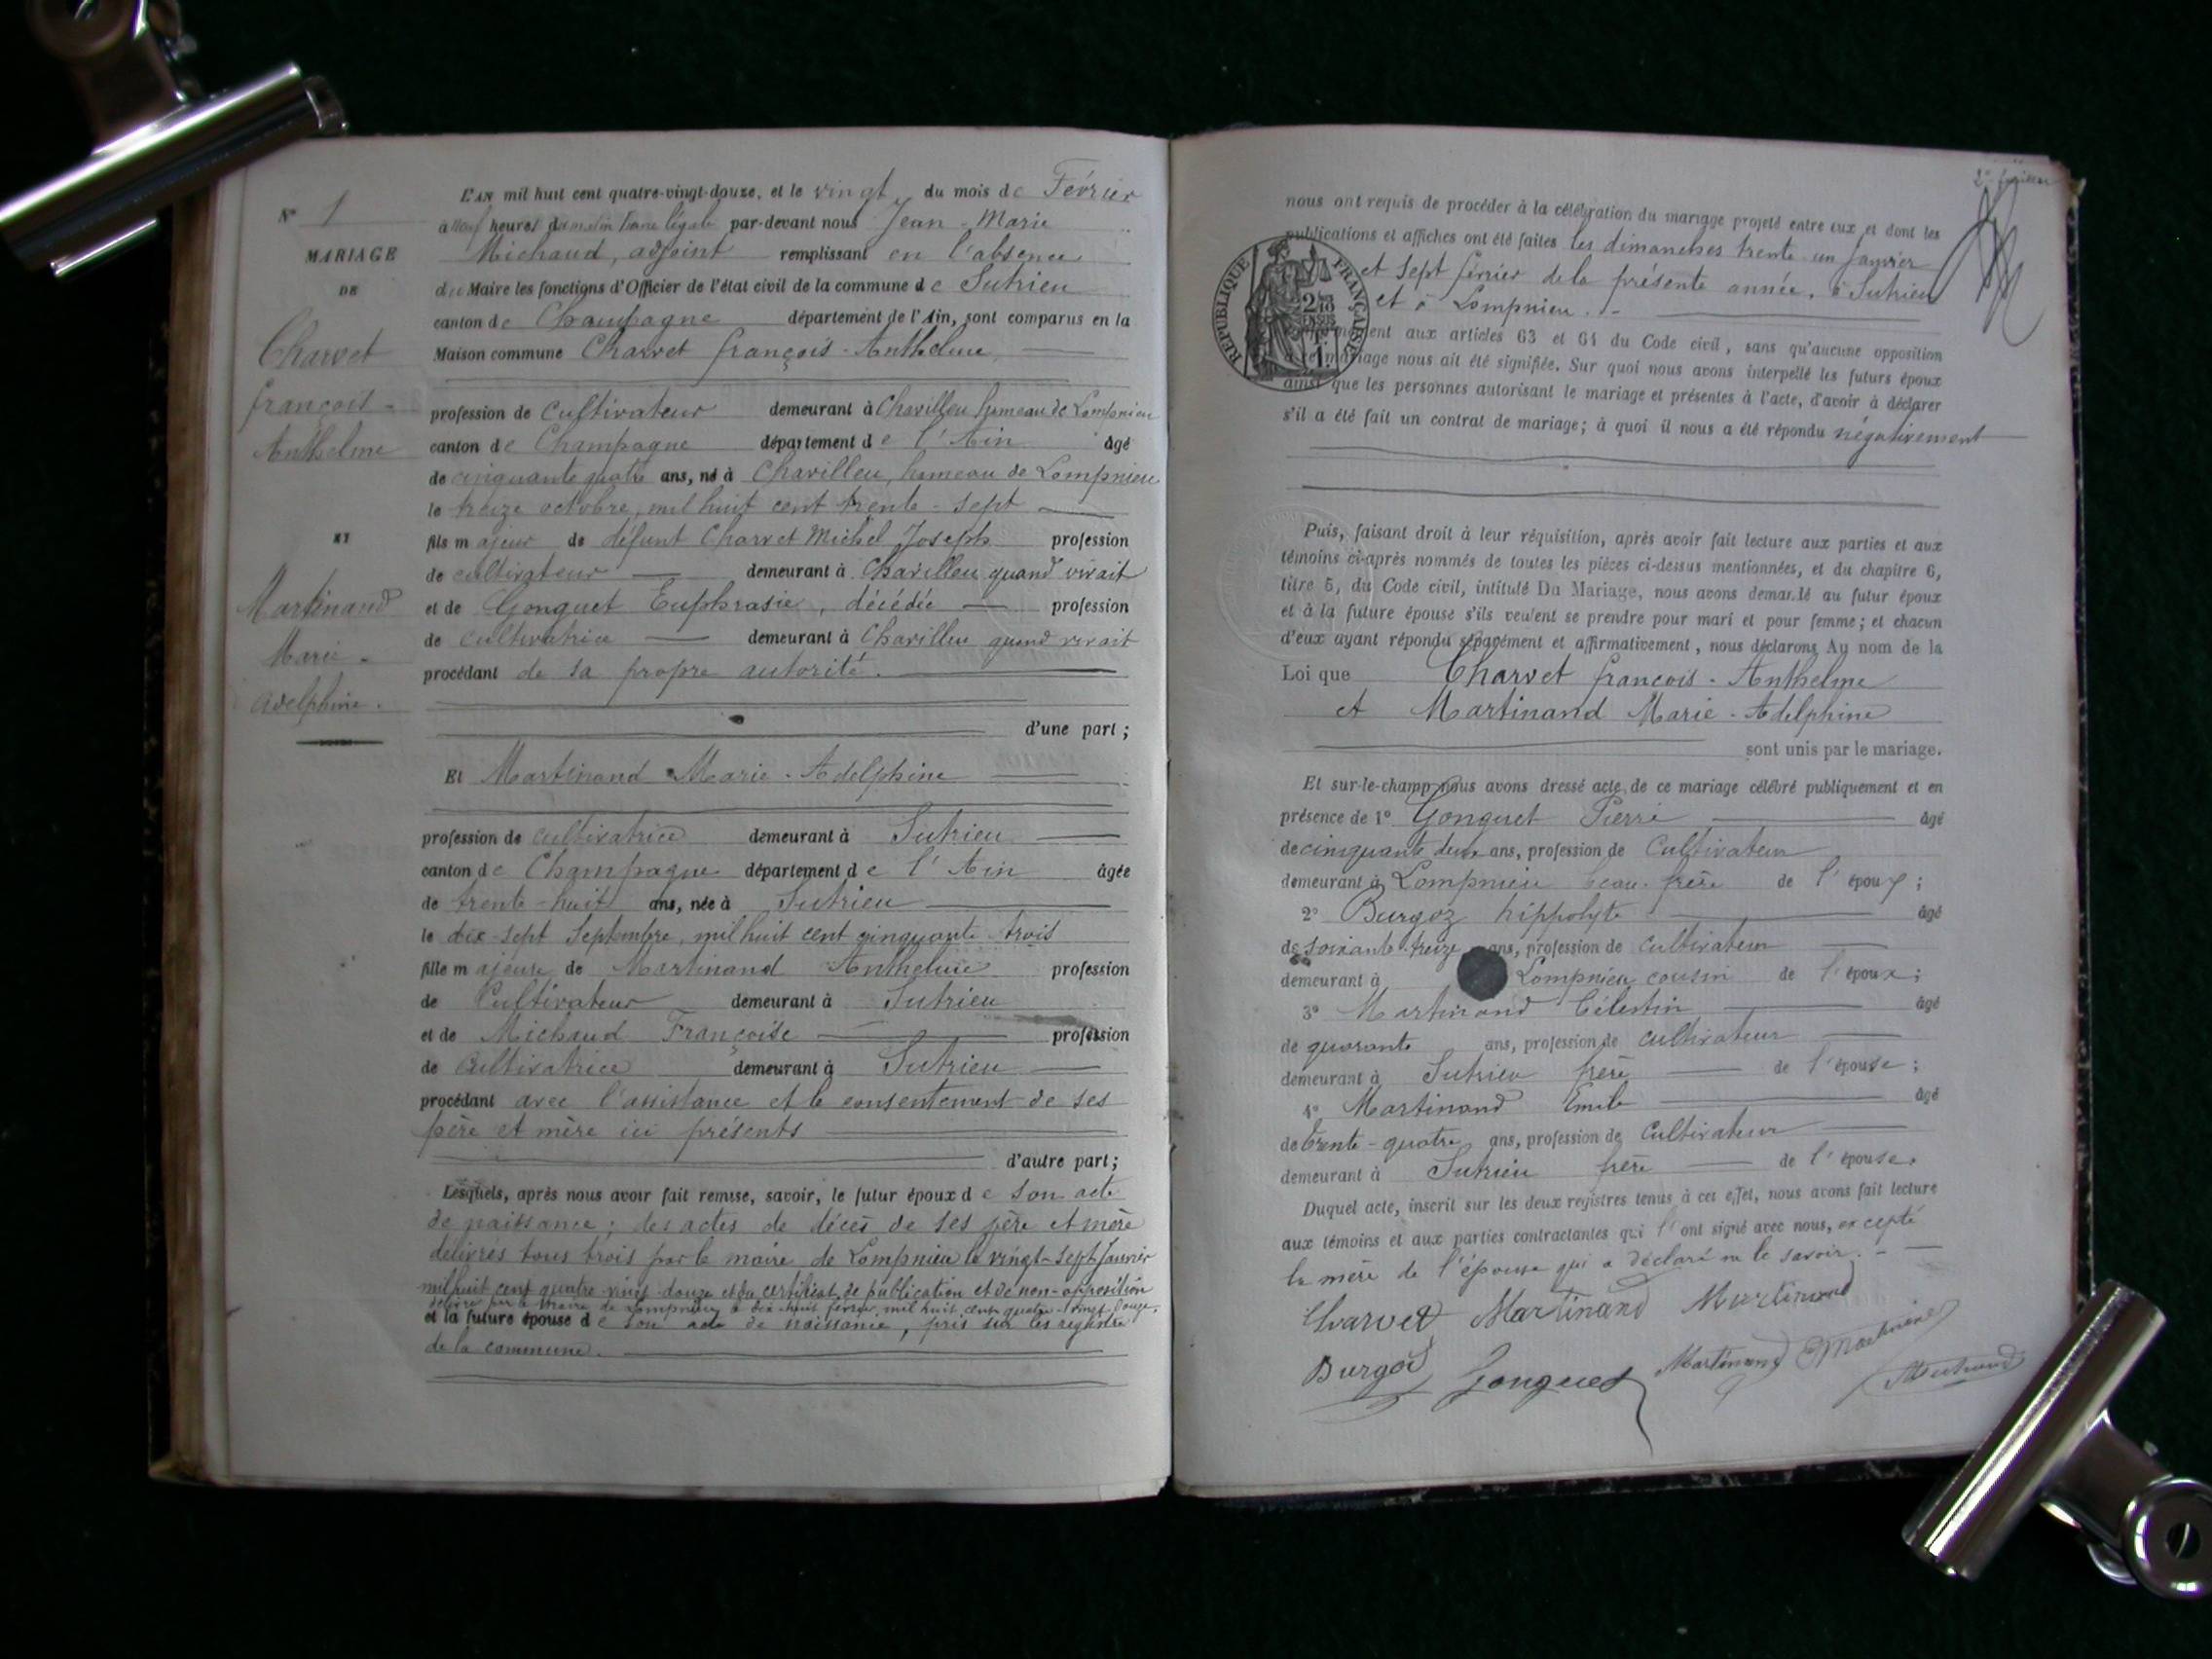 N° 1
MARIAGE
DE
Charvet
françois-
Anthelme
ET
Martinand
Marie-
Adelphine.
L'AN mil huit cent quatre-vingt-douze, et le vingt, du mois de Février
à neuf heures du matin heure légale par-devant nous Jean-Marie
Michaud, adjoint remplissant en l'absence
du Maire les fonctions d'Officier de l'état civil de la commune de Sutrieu
canton de Champagne département de l'Ain, sont comparus en la
Maison commune Charvet françois-Anthelme
profession de cultivateur demeurant à Charilleu hameau de Lompnieu
canton de Champagne département de l'Ain âgé
de cinquante quatre ans, né à Charilleu, hameau de Lompnieu
le treize octobre, mil huit cent trente-sept
fils majeur de défunt Charvet Michel Joseph profession
de cultivateur demeurant à Charilleu quand vivait
et de Gonguet Euphrasie, décédée profession
de cultivatrice demeurant à Charilleu quand vivait
procédant de sa propre autorité.
d'une part;
Et Martinand Marie-Adelphine
profession de cultivatrice demeurant à Sutrieu
canton de Champagne département de l'Ain âgée
de trente-huit ans, née à Sutrieu
le dix-sept Septembre, mil huit cent cinquante-trois
fille majeure de Martinand Anthelme profession
de Cultivateur demeurant à Sutrieu
et de Michaud Françoise profession
de Cultivatrice demeurant à Sutrieu
procédant avec l'assistance et le consentement de ses
père et mère ici présents
d'autre part;
Lesquels, après nous avoir fait remise, savoir, le futur époux de son acte
de naissance; des actes de décès de ses père et mère
délivrés tous trois par le maire de Lompnieu le vingt-sept Janvier
mil huit cent quatre-vingt douze et du certificat de publication et de non-opposition
délivré par le Maire de Lompnieu le dix-huit février mil huit cent quatre-vingt-douze.
et la future épouse de son acte de naissance, pris sur les registre
de la commune.
2e feuillet
nous ont requis de procéder à la célébration du mariage projeté entre eux et dont les
publications et affiches ont été faites les dimanches trente-un Janvier
et sept février de la présente année, à Sutrieu
et à Lompnieu.
RÉPUBLIQUE FRANÇAISE
conformément aux articles 63 et 64 du Code civil, sans qu'aucune opposition
à ce mariage nous ait été signifiée. Sur quoi nous avons interpellé les futurs époux
ainsi que les personnes autorisant le mariage et présentes à l'acte, d'avoir à déclarer
s'il a été fait un contrat de mariage; à quoi il nous a été répondu négativement
Puis, faisant droit à leur réquisition, après avoir fait lecture aux parties et aux
témoins ci-après nommés de toutes les pièces ci-dessus mentionnées, et du chapitre 6,
titre 5, du Code civil, intitulé Du Mariage, nous avons demandé au futur époux
et à la future épouse s'ils veulent se prendre pour mari et pour femme; et chacun
d'eux ayant répondu séparément et affirmativement, nous déclarons Au nom de la
Loi que Charvet françois-Anthelme
et Martinand Marie-Adelphine
sont unis par le mariage.
Et sur-le-champ nous avons dressé acte de ce mariage célébré publiquement et en
présence de 1° Gonguet Pierre âgé
de cinquante deux ans, profession de Cultivateur
demeurant à Lompnieu beau-frère de l'époux;
2° Burgoz hippolyte âgé
de soixante-treize ans, profession de cultivateur
demeurant à Lompnieu cousin de l'époux;
3° Martinand Célestin âgé
de quarante ans, profession de cultivateur
demeurant à Sutrieu frère de l'épouse;
4° Martinand Emile âgé
de trente-quatre ans, profession de Cultivateur
demeurant à Sutrieu frère de l'épouse.
Duquel acte, inscrit sur les deux registres tenus à cet effet, nous avons fait lecture
aux témoins et aux parties contractantes qui l'ont signé avec nous, excepté
la mère de l'épouse qui a déclaré ne le savoir.
Charvet Martinand Martinand
Burgoz Gonguet Martinand E Martinand